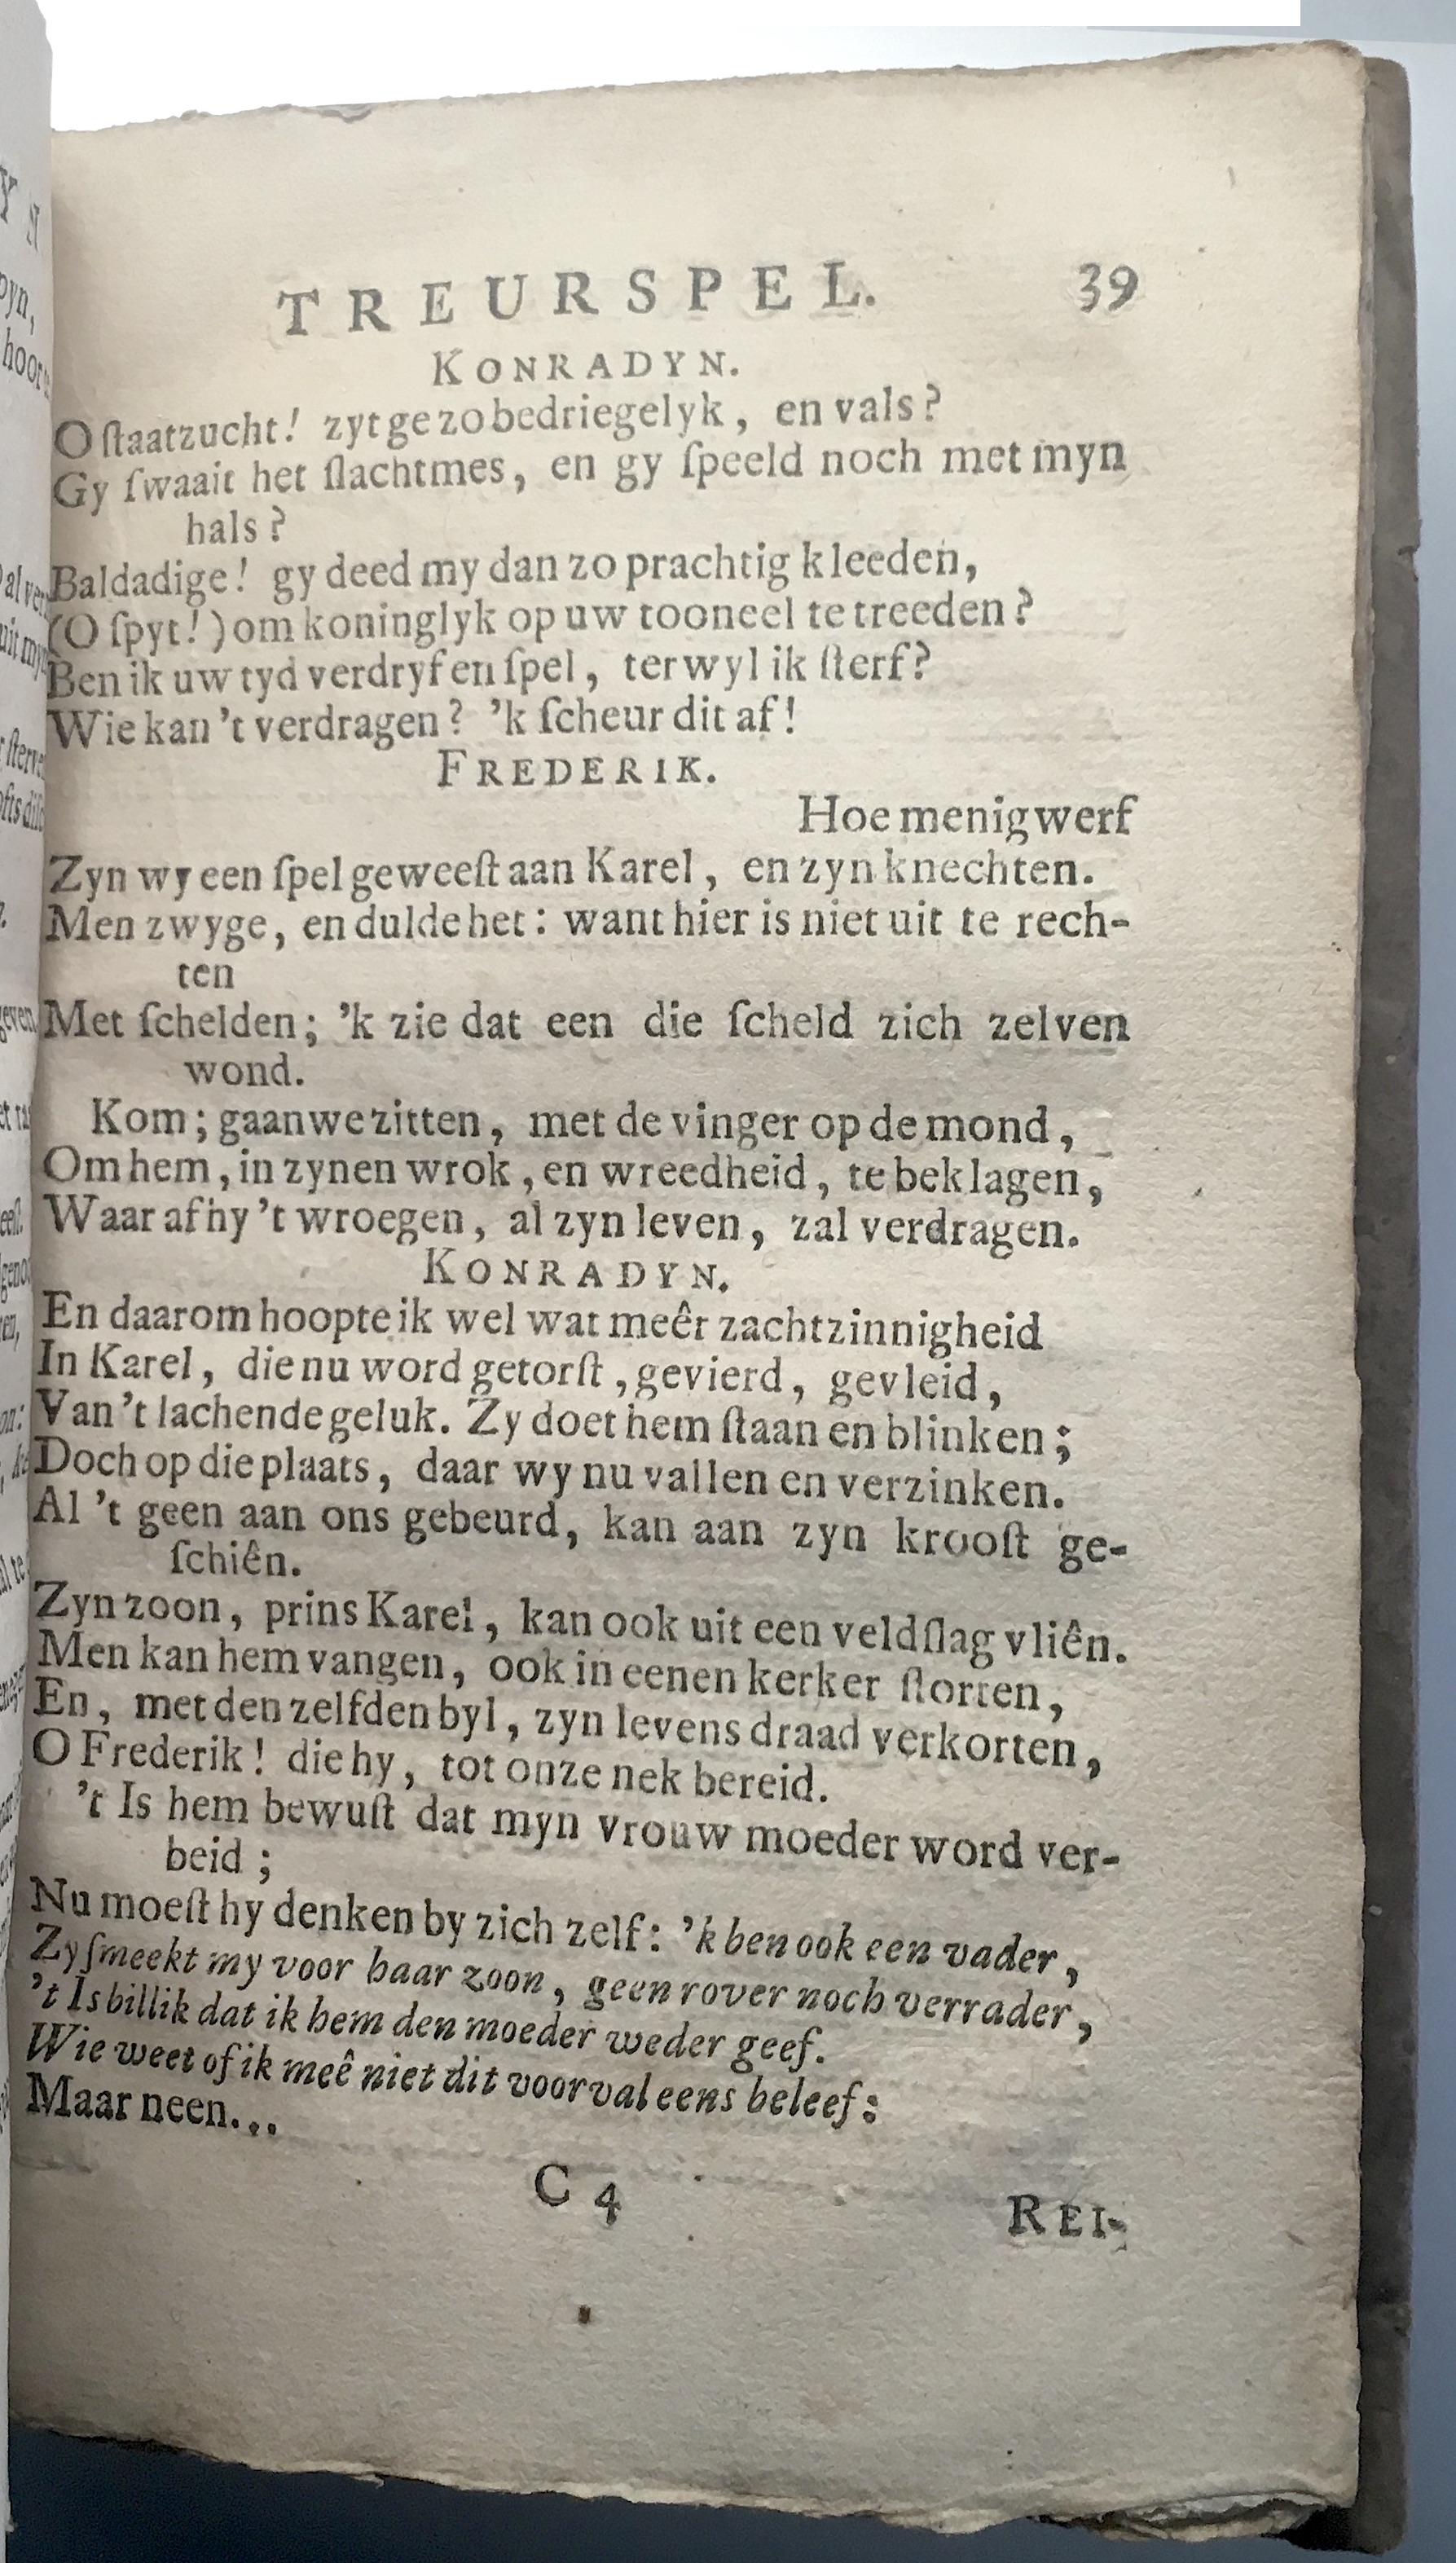 TREURSPEL. 39
KONRADYN.
O ſtaatzucht! zyt ge zo bedriegelyk, en vals?
Gy ſwaait het ſlachtmes, en gy ſpeeld noch met myn
hals?
Baldadige! gy deed my dan zo prachtig kleeden,
(O ſpyt!) om koninglyk op uw tooneel te treeden?
Ben ik uw tyd verdryf en ſpel, terwyl ik ſterf?
Wie kan 't verdragen? 'k ſcheur dit af!
FREDERIK.
Hoe menigwerf
Zyn wy een ſpel geweeſt aan Karel, en zyn knechten.
Men zwyge, en dulde het: want hier is niet uit te rech-
ten
Met ſchelden; 'k zie dat een die ſcheld zich zelven
wond.
Kom; gaan we zitten, met de vinger op de mond,
Om hem, in zynen wrok, en wreedheid, te beklagen,
Waar af hy 't wroegen, al zyn leven, zal verdragen.
KONRADYN.
En daarom hoopte ik wel wat meêr zachtzinnigheid
In Karel, die nu word getorſt, gevierd, gevleid,
Van 't lachende geluk. Zy doet hem ſtaan en blinken;
Doch op die plaats, daar wy nu vallen en verzinken.
Al 't geen aan ons gebeurd, kan aan zyn krooſt ge-
ſchiên.
Zyn zoon, prins Karel, kan ook uit een veldſlag vliên.
Men kan hem vangen, ook in eenen kerker ſtorten,
En, met den zelfden byl, zyn levens draad verkorten,
O Frederik! die hy, tot onze nek bereid.
't Is hem bewuſt dat myn vrouw moeder word ver-
beid;
Nu moeſt hy denken by zich zelf: 'k ben ook een vader,
Zy ſmeekt my voor haar zoon, geen rover noch verrader,
't Is billik dat ik hem den moeder weder geef.
Wie weet of ik meê niet dit voorval eens beleef:
Maar neen...
C 4
REI-